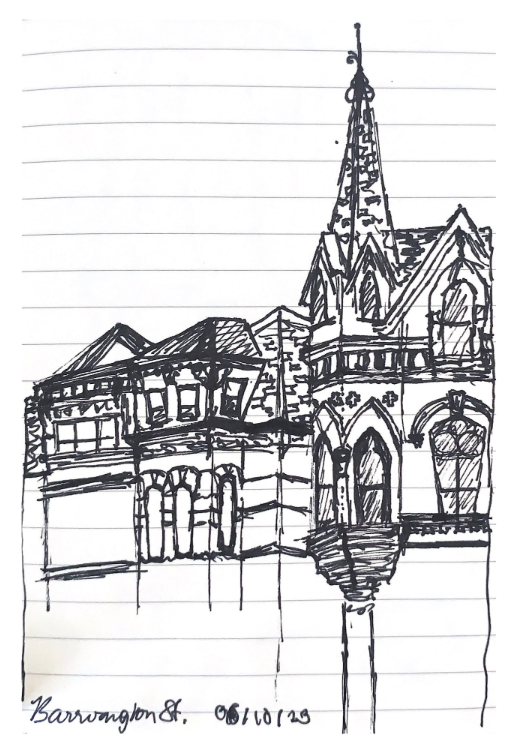 Barrington St. 06/10/23